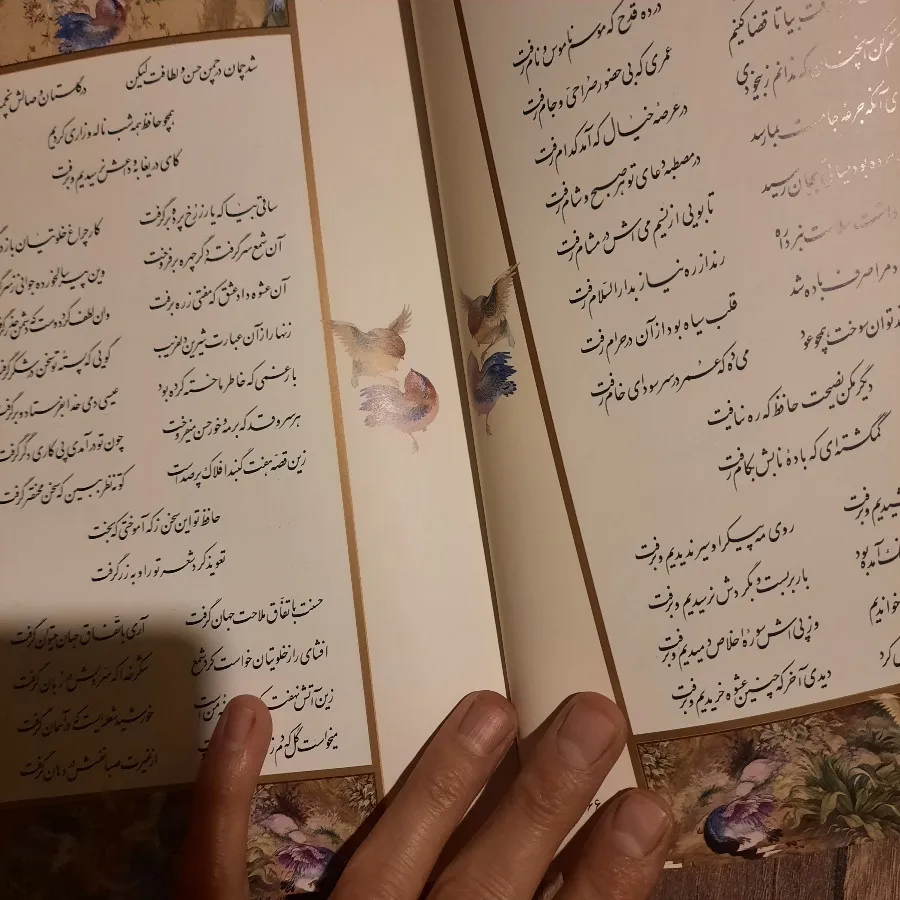 درده قدح که موسم ناموس و نام رفت
رفت بیا تا قضا کنیم عمری که بی حضور صراحی و جام رفت
کن آنچنان که ندانم ز بیخودی در عرصهٔ خیال که آمد کدام رفت
آنکه جرعهٔ جامت بما رسد در مصطبه دعای تو هر صبح و شام رفت
مرده بود حیاتی بجان رسید تا بویی از نسیم می اش در مشام رفت
داشت سلامت نبرد راه رند از ره نیاز بدارالسلام رفت
مرا صرف باده شد قلب سیاه بود از آن در حرام رفت
توان سوخت همچو عود می ده که عمر در سر سودای خام رفت
دیگر مکن نصیحت حافظ که ره نیافت
گمگشته‌ای که بادهٔ نابش بکام رفت
نچشیدیم و برفت روی مه پیکر او سیر ندیدیم و برفت
آمده بود بار بربست و بگردش نرسیدیم و برفت
خواندیم وز پی اش سورهٔ اخلاص دمیدیم و برفت
کرد دیدی آخر که چنین عشوه خریدیم و برفت
شد چمان در چمن حسن و لطافت لیکن در گلستان وصالش
همچو حافظ همه شب ناله و زاری کردیم
کای دریغا به وداعش نرسیدیم و برفت
ساقی بیا که یار ز رخ پرده برگرفت کار چراغ خلوتیان باز
آن شمع سرگرفته دگر چهره برفروخت وین پیر سالخورده جوانی ز سر
آن عشوه داد عشق که مفتی ز ره برفت وان لطف کرد دوست که دشمن حذر
زنهار از آن عبارت شیرین دلفریب گویی که پستهٔ تو سخن در شکر
بار غمی که خاطر ما خسته کرده بود عیسی دمی خدا بفرستاد و برگرفت
هر سرو قد که بر مه و خور حسن میفروخت چون تو درآمدی پی کاری دگر گرفت
زین قصه هفت گنبد افلاک پر صداست کوته نظر ببین که سخن مختصر گرفت
حافظ تو این سخن ز که آموختی که بخت
تعویذ کرد شعر تو را و به زر گرفت
حسنت باتفاق ملاحت جهان گرفت آری باتفاق جهان میتوان گرفت
افشای راز خلوتیان خواست کرد شمع شکر خدا که سر دلش در زبان گرفت
زین آتش نهفته من است خورشید شعله‌ایست که در آسمان گرفت
میخواست گل که دم ز غیرت صبا نفسش در دهان گرفت